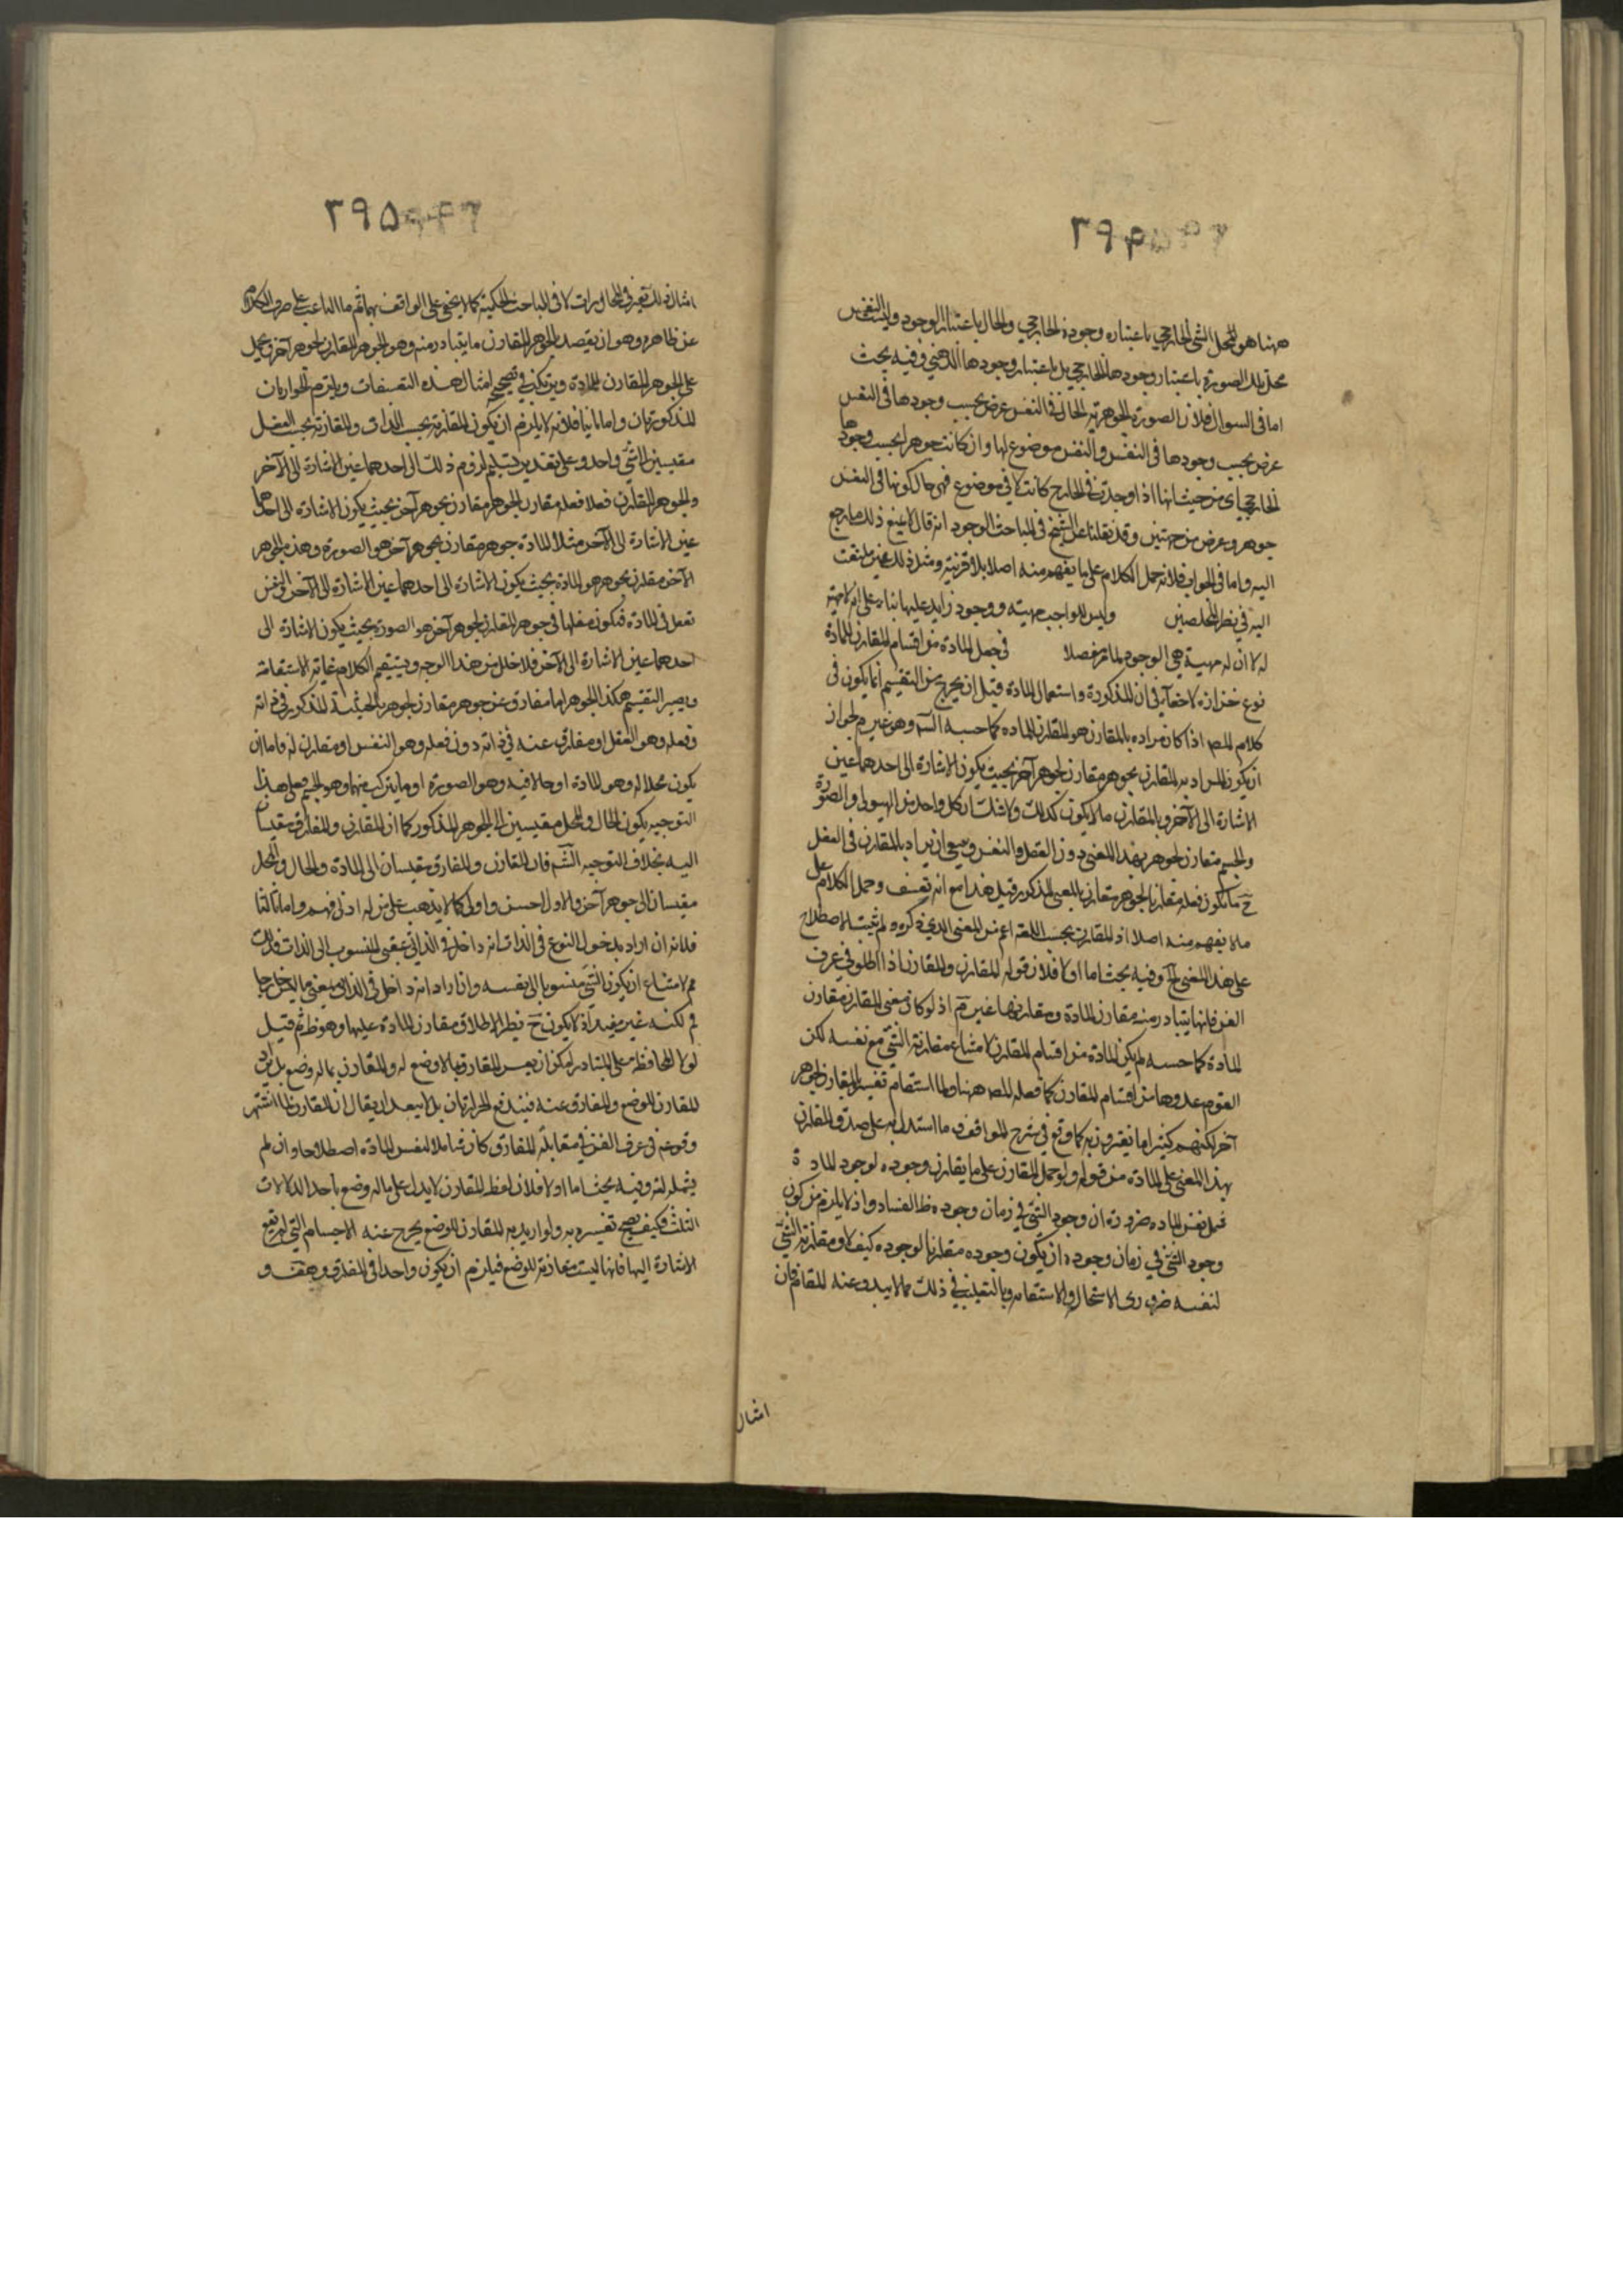 ۲۹۴
ههنا هو المحل الشئ الخارجي باعتباره وجوده الخارجي والحال باعتبار الوجود وليت النفس
محل تلك الصورة باعتبار وجودها الخارجي بل باعتبار وجودها الذهني وفيه بحث
اما في السوال فلان الصورة الجوهرية الحال في النفس عرض بحسب وجودها في النفس
عرض بحسب وجودها في النفس والنفس موضوع لها وان كانت جوهرا بحسب وجودها
الخارجي اي من حيث انها اذا وجدت في الخارج كانت لا في موضوع فهي حال كونها في النفس
جوهر وعرض من جهتين وقد نقلنا عن الشيخ في المباحث الوجود انه قال لا يمنع ذلك ما رجع
اليه واما في الجواب فلانه حمل الكلام على ما يفهم منه اصلا بلا قرينة ومثل ذلك غير ملتفت
اليه في نظر المخلصين وليس للواجب مهيته ووجود زايد عليها بناء على انه لا مهية
له لا ان له مهية هي الوجود لما مر مفصلا في جعل المادة من اقسام المقارن للمادة
نوع خزازه لا خفاء في ان المذكورة واستعمال المادة قبل ان يخرج من التقسيم انما يكون في
كلام المصـ اذا كان مراده بالمقارن هو المقارن للماده كما حسبه الشـ وهو غير م لجواز
ان يكون المراد به المقارن بجوهر مقارن لجوهر آخر بحيث يكون الاشارة الى احدهما عين
الاشارة الى الآخر وبالمقارن ما لا يكون كذلك ولا شك ان كل واحد من الهيولى والصورة
والجسم مقارن لجوهر بهذا المعنى دون العقل والنفس ويصح ان يراد بالمقارن في الفعل
ح ما يكون فعله مقارنا لجوهر مقارن بالمعنى المذكور قيل هذا مع انه تعسف وحمل الكلام على
ما لا يفهم منه اصلا اذ المقارن بحسب اللغة اعم من المعنى الذي ذكره ولم يثبت الاصطلاح
على هذا المعنى الخ وفيه بحث اما اولا فلان قوله المقارن والمقارن اذا اطلق في عرف
الفن فانها يتبادر منه مقارن المادة ومقارنها غير م اذ لو كان معنى المقارن مقارن
المادة كما حسبه لم يكن المادة من اقسام المقارن لامتناع مقارنة الشئ مع نفسه لكن
القوم عدوها من اقسام المقارن كما فعله المصـ ههنا ولما استقام تفسير المقارن لجوهر
آخر لكنهم كثيرا ما يفترون به كما وقع في شرح المواقف وما استدل به على صدق المقارن
بهذا المعنى على المادة من قوله ولو حمل المقارن على ما يقارن وجوده لوجود المادة
فيحمل نفس الماده ضرورة ان وجود الشئ في زمان وجوده ظ الفساد واذ لا يلزم من كون
وجود الشئ في زمان وجوده ان يكون وجوده مقارنا لوجوده كيف لا ومقارنة الشئ
لنفسه ضروري الاستحالة والاستقامة وبالتغليب في ذلك مما لا يبدو عنه المقام فان
امثال
۲۹۵
امثال ذلك تعتبر في المحاورات لا في المباحث الحكمية كما لا يخفى على الواقف بها ثم ما الباعث على صرف الكلام
عن ظاهره وهو ان يقصد بالجوهر المقارن ما يتبادر منه وهو الجوهر المقارن لجوهر آخر ويحمل
على الجوهر المقارن للمادة ويرتكب في تصحيحه امثال هذه التعسفات ويلتزم الخزازتان
المذكورتان واما ثانيا فلانه لا يلزم ان يكون المقارنة بحسب الذات والمقارنة بحسب الفعل
مقيسين الى شئ واحد وعلى تقدير تسليم لزوم ذلك الى احدهما عين الاشارة الى الآخر
والجوهر المقارن فعلا فعله مقارن لجوهر مقارن بجوهر آخر بحيث يكون الاشارة الى احدهما
عين الاشارة الى الآخر مثلا المادة جوهر مقارن بجوهر آخر هو الصورة وهذه الجوهر
الآخر مقارن بجوهر هو المادة بحيث يكون الاشارة الى احدهما عين الاشارة الى الآخر والنفس
تفعل في المادة فيكون فعلها في جوهر المقارن لجوهر آخر هو الصورة بحيث يكون الاشارة الى
احدهما عين الاشارة الى الآخر فلا خلل من هذا الوجه ويستقيم الكلام غاية الاستقامة
ويصير التقسيم هكذا الجوهر اما مفارق عن جوهر مقارن لجوهر بالحيثية المذكورة في ذاته
وفعله وهو العقل او مفارق عنه في ذاته دون فعله وهو النفس او مقارن له فاما ان
يكون محلا له وهو المادة او حالا فيه وهو الصورة او ما يتركب منهما وهو الجسم فعلى هذا
التوجيه يكون الحال والمحل مقيسين الى الجوهر المذكور كما ان المقارن والمفارق مقيسان
اليه بخلاف التوجيه الشـ فان المقارن والمفارق مقيسان الى المادة والحال والمحل
مقيسان الى جوهر آخر والاول احسن واولى كما لا يذهب على من له ادنى فهم واما ثالثا
فلانه ان اراد بدخول النوع في الذات انه داخل في الذاتي بمعنى المنسوب الى الذات فذلك
مم لامتناع ان يكون الشئ منسوبا الى نفسه وان اراد انه داخل في الذاتي بمعنى ما ليس خارجا
فم لكنه غير مفيد اذ لا يكون ح نظير الاطلاق مقارن المادة عليها وهو ظ ثم قيل
لولا المحافظة على المتبادر لمكن ان يفسر المفارق بما لا وضع له والمقارن بما له وضع بل يراد
المقارن للوضع والمفارق عنه فيندفع الخزازتان بل لا يبعد ان يقال ان المقارن لما اشتهر
وقوعه في عرف الفن في مقابلة المفارق كان شاملا لنفس المادة اصطلاحا وان لم
يشمله لغة وفيه بحث اما اولا فلان لفظ المقارن لا يدل على ما له وضع باحد الدلالات
الثلث فكيف يصح تفسيره به ولو اريد به المقارن للوضع يخرج عنه الاجسام التي لم يقع
الاشارة اليها فانها ليست مقارنة للوضع فيلزم ان يكون واحدا في المفارق وحقه و